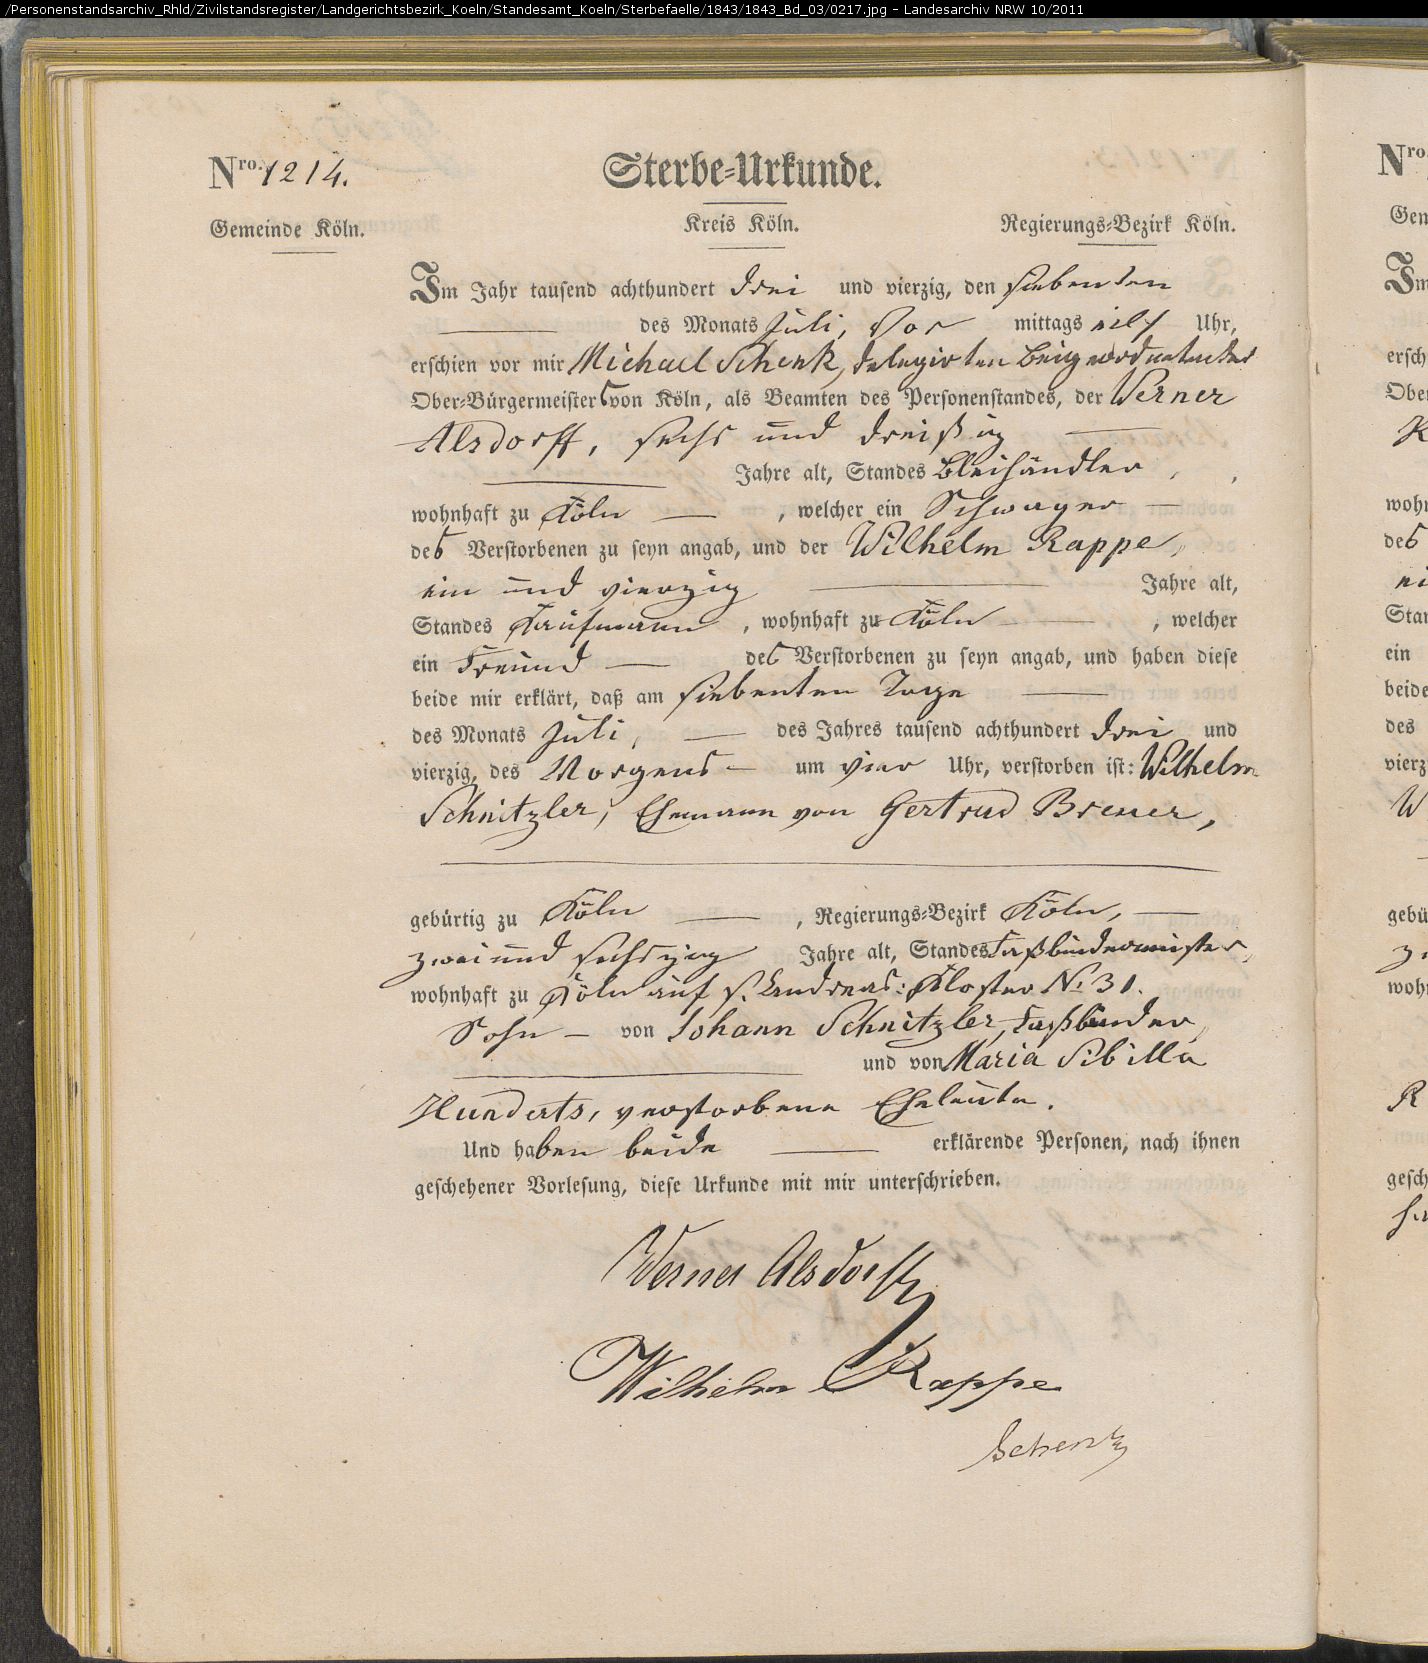 /Personenstandsarchiv_Rhld/Zivilstandsregister/Landgerichtsbezirk_Koeln/Standesamt_Koeln/Sterbefaelle/1843/1843_Bd_03/0217.jpg - Landesarchiv NRW 10/2011
Nro. 1214.
Sterbe-Urkunde.
Gemeinde Köln. Kreis Köln. Regierungs-Bezirk Köln.
Im Jahr tausend achthundert drei und vierzig, den siebenten
des Monats Juli, Vor mittags eilf Uhr,
erschien vor mir Michael Schenk, delegirten Beigeordneten des
Ober-Bürgermeisters von Köln, als Beamten des Personenstandes, der Werner
Alsdorff, sechs und dreißig
Jahre alt, Standes Bleihändler,
wohnhaft zu Köln, welcher ein Schwager
des Verstorbenen zu seyn angab, und der Wilhelm Rappe,
ein und vierzig Jahre alt,
Standes Kaufmann, wohnhaft zu Köln, welcher
ein Freund des Verstorbenen zu seyn angab, und haben diese
beide mir erklärt, daß am siebenten Tage
des Monats Juli, des Jahres tausend achthundert drei und
vierzig, des Morgens um vier Uhr, verstorben ist: Wilhelm
Schnitzler, Ehemann von Gertrud Brewer,
gebürtig zu Köln, Regierungs-Bezirk Köln,
zwei und sechszig Jahre alt, Standes Faßbindermeister,
wohnhaft zu Köln auf St. Andreas-Kloster No 31.
Sohn von Johann Schnitzler, Faßbinder,
und von Maria Sibilla
Hunderts, verstorbene Eheleute.
Und haben beide erklärende Personen, nach ihnen
geschehener Vorlesung, diese Urkunde mit mir unterschrieben.
Werner Alsdorff
Wilhelm Rappe
Schenk
Nro
Gem
Im
ersch
Ober
K
wohn
des
ei
Stan
ein
beide
des
vierz
W
gebü
wohn
R
gesch